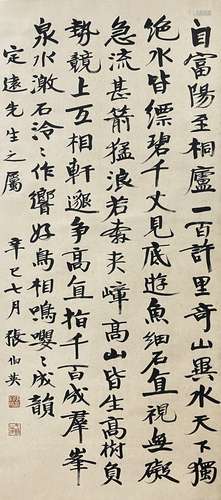 自富陽至桐廬一百許里奇山異水天下獨
絶水皆縹碧千丈見底遊魚細石直視無礙
急流甚箭猛浪若奔夾嶂高山皆生高樹負
勢競上互相軒邈爭高直指千百成羣峯
泉水激石泠〻作響好鳥相鳴嚶〻成韻
定遠先生之屬 辛巳七月張伯英